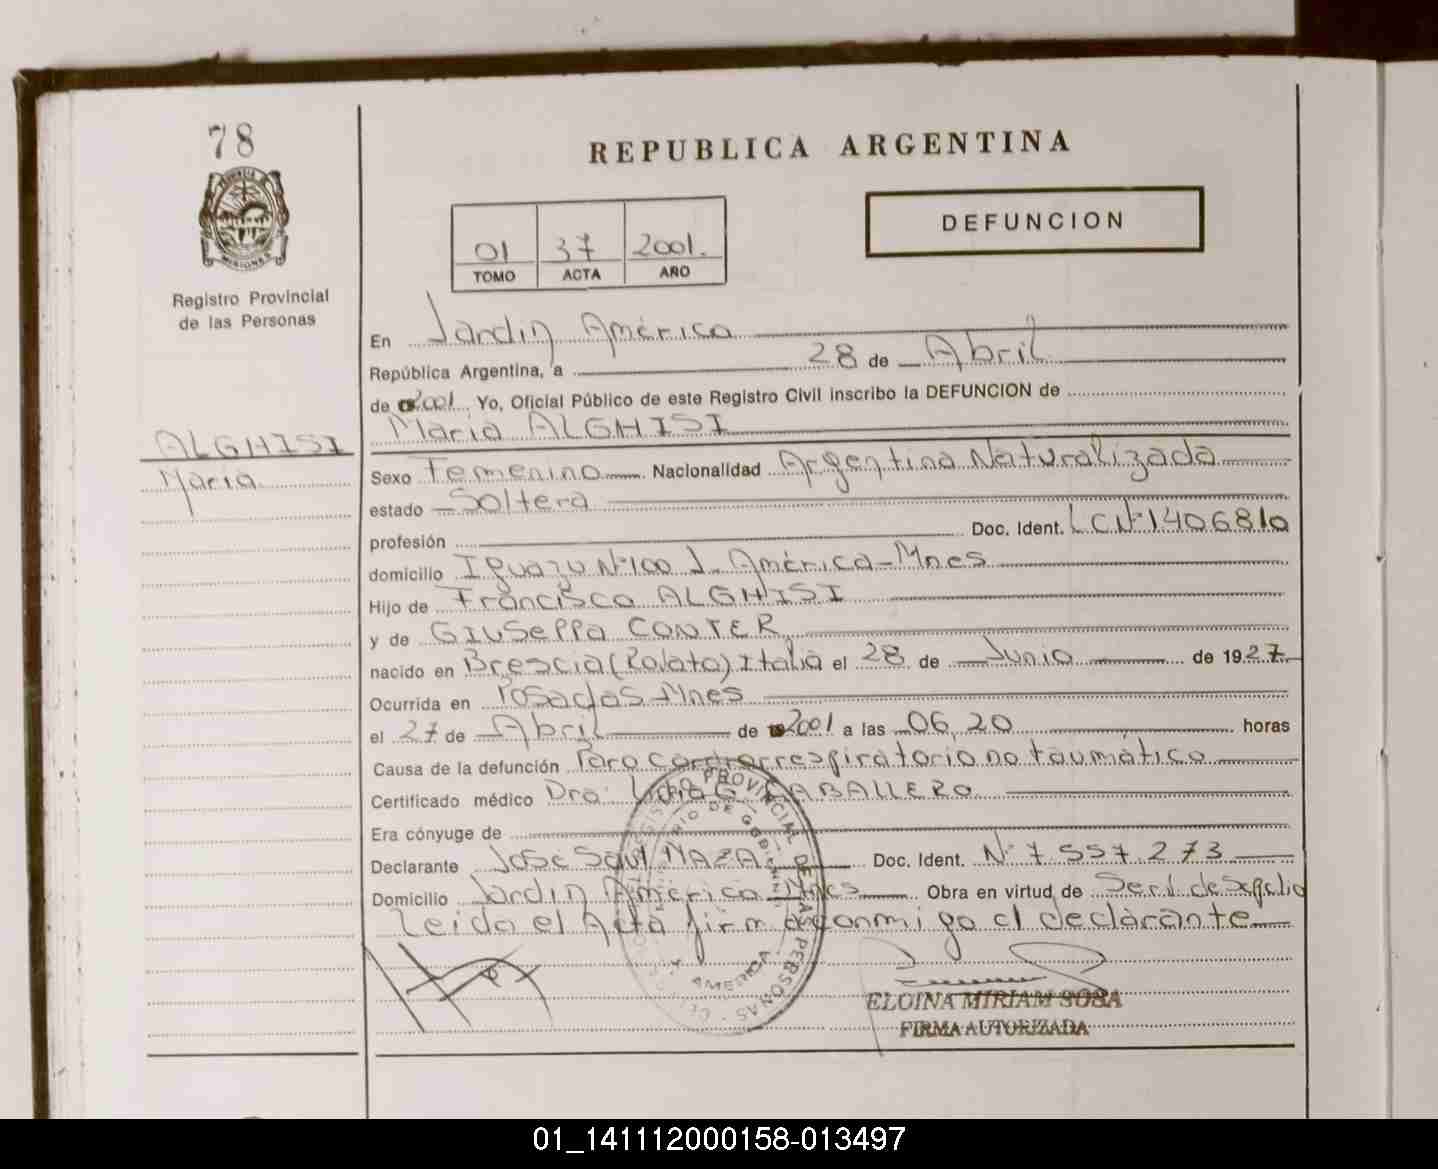 78
MISIONES
Registro Provincial
de las Personas
ALGHISI
Maria
REPUBLICA ARGENTINA
01 37 2001.
TOMO ACTA AÑO
DEFUNCION
En Jardin América
República Argentina, a 28 de Abril
de 2001 Yo, Oficial Público de este Registro Civil inscribo la DEFUNCION de
Maria ALGHISI
Sexo Femenino Nacionalidad Argentina Naturalizada
estado Soltera
profesión Doc. Ident. LC Nº 1406810
domicilio Iguazu Nº 100 J. América-Mnes
Hijo de Francisco ALGHISI
y de GIUSEPPA CONTER
nacido en Brescia (Rovato) Italia el 28 de Junio de 1927
Ocurrida en Posadas-Mnes
el 27 de Abril de 2001 a las 06,20 horas
Causa de la defunción Paro cardiorrespiratorio no taumático
Certificado médico Dra: G. CABALLERO
Era cónyuge de
Declarante José Saul MAZA Doc. Ident. Nº 7 557 273
Domicilio Jardin América-Mnes Obra en virtud de Serv. de Sepelio
Leida el Acta firma conmigo el declarante
PROVINCIAL DE LAS PERSONAS
AMERICA
ELOINA MIRIAM SOSA
FIRMA AUTORIZADA
01_141112000158-013497